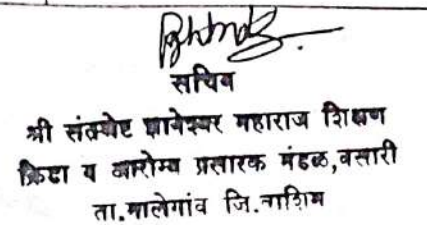 सचिव
श्री संतश्रेष्ठ ज्ञानेश्वर महाराज शिक्षण
क्रिडा व आरोग्य प्रसारक मंडळ, वसारी
ता.मालेगांव जि.वाशिम